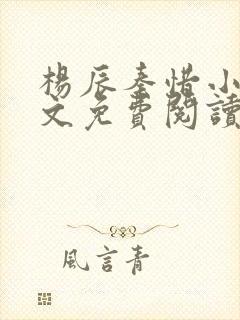 楊辰秦惜小
文免費閱讀
風言青